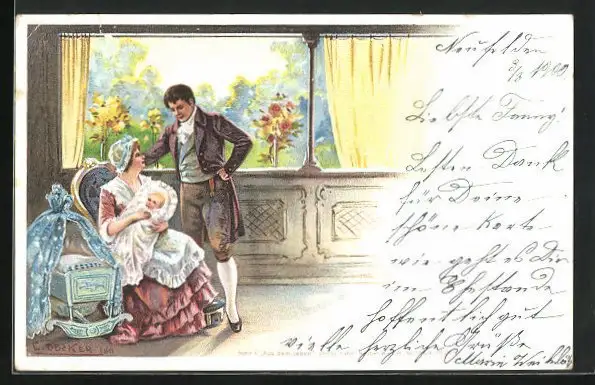 Neufelden
3/3 1900
Liebste Fanny!
Besten Dank
für Deine
schöne Karte
wie geht es Dir
im Ehestande
hoffentlich gut
vielle herzliche Grüße
DÖCKER